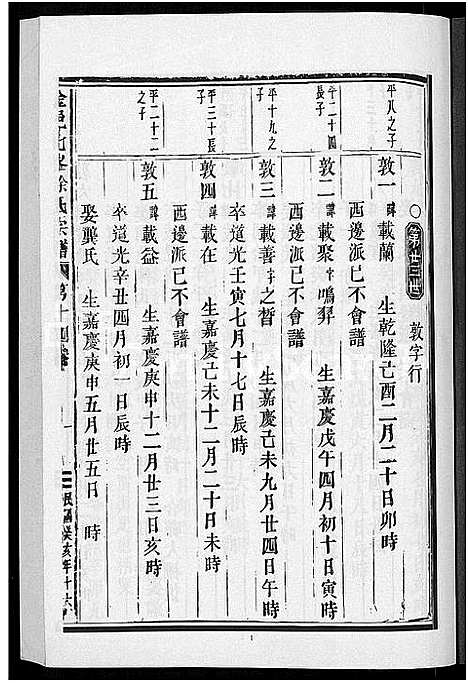 第廿三世 敦字行
平八之子
敦一 諱載蘭 生乾隆己酉二月二十日卯時
西邊派已不會譜
平二十四長子
敦二 諱載聚字鳴羿 生嘉慶戊午四月初十日寅時
西邊派已不會譜
平十九之子
敦三 諱載善字之晳 生嘉慶己未九月廿四日午時
卒道光壬寅七月十七日辰時
平三十長子
敦四 諱載在 生嘉慶己未十二月二十日未時
西邊派已不會譜
平二十二之子
敦五 諱載益 生嘉慶庚申十二月廿三日亥時
卒道光辛丑四月初一日辰時
娶龔氏 生嘉慶庚申五月廿五日 時
徐氏宗譜 第十四 癸亥年